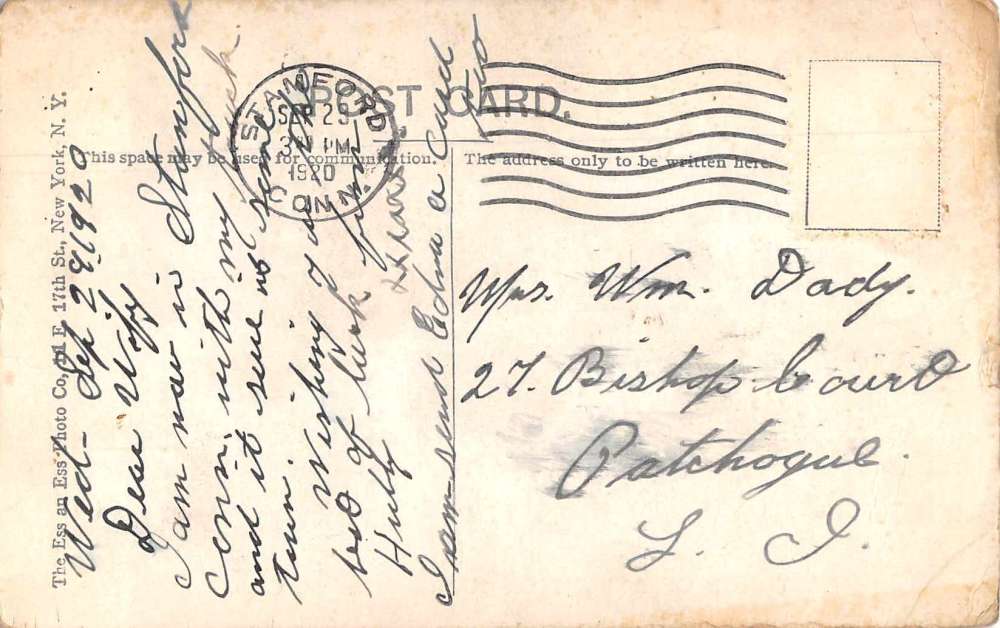 POST CARD.
This space may be used for communication.
The address only to be written here.
The Ess an Ess Photo Co, E. 17th St., New York, N. Y.
STAMFORD
SEP 29
3 PM
1920
CONN.
Wed- Sep 29/1920
Dear Wify
I am now in Stamford
Conn. with my truck
and it sure is some
town.
Wishing you
best of luck from
Hubby xxxxx
I am send Edna a card
Mrs. Wm. Dady.
27. Bishop Court
Patchogue.
L. I.